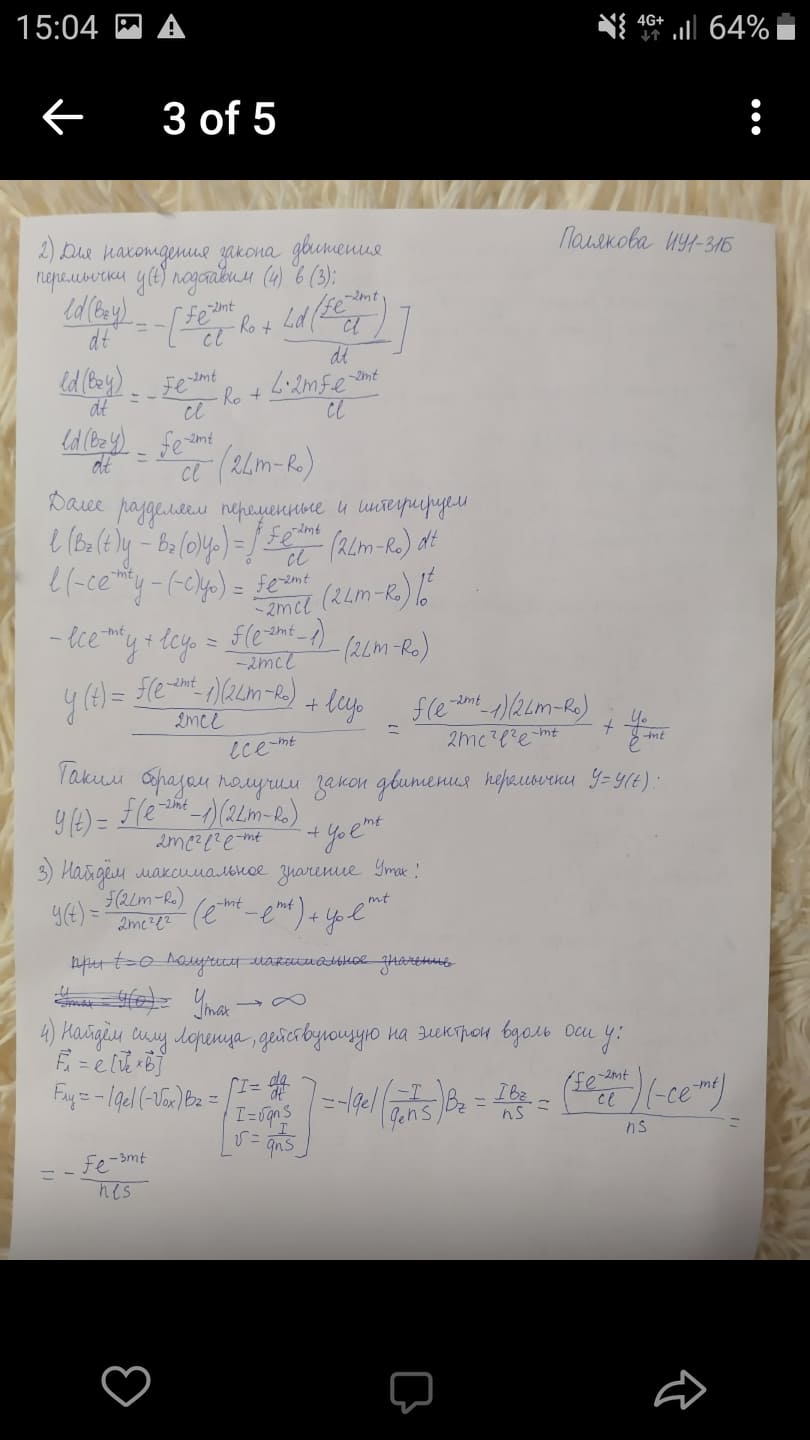 15:04 4G+ 64%
3 of 5
Полякова ИУ1-31Б
2) Для нахождения закона движения
перемычки y(t) подставим (4) в (3):
ld(Bzy)/dt = -[fe^(-2mt)/cl R₀ + Ld(fe^(-2mt)/cl)/dt]
ld(Bzy)/dt = -fe^(-2mt)/cl R₀ + L·2mfe^(-2mt)/cl
ld(Bzy)/dt = fe^(-2mt)/cl (2Lm-R₀)
Далее разделяем переменные и интегрируем
l(Bz(t)y - Bz(0)y₀) = ∫₀ᵗ fe^(-2mt)/cl (2Lm-R₀) dt
l(-ce^(-mt)y - (-c)y₀) = fe^(-2mt)/-2mcl (2Lm-R₀)|₀ᵗ
-lce^(-mt)y + lcy₀ = f(e^(-2mt)-1)/-2mcl (2Lm-R₀)
y(t) = (f(e^(-2mt)-1)(2Lm-R₀)/2mcl + lcy₀)/lce^(-mt) = f(e^(-2mt)-1)(2Lm-R₀)/2mc²l²e^(-mt) + y₀/e^(-mt)
Таким образом получим закон движения перемычки y=y(t):
y(t) = f(e^(-2mt)-1)(2Lm-R₀)/2mc²l²e^(-mt) + y₀e^(mt)
3) Найдём максимальное значение ymax:
y(t) = f(2Lm-R₀)/2mc²l² (e^(-mt) - e^(mt)) + y₀e^(mt)
при t=0 получим максимальное значение
ymax = y(0) = ymax → ∞
4) Найдём силу Лоренца, действующую на электрон вдоль оси y:
F⃗л = e[v⃗ × B⃗]
Fлy = -|qe|(-v₀x)Bz = [I = dq/dt I = vqnS v = I/qnS] = -|qe|(-I/qenS)Bz = IBz/nS = (fe^(-2mt)/cl)(-ce^(-mt))/nS =
= - fe^(-3mt)/nls